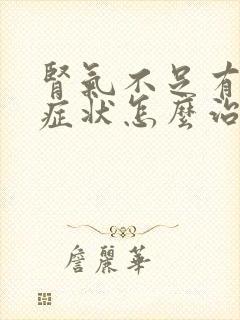 腎氣不足有
症狀怎麼治
詹麗華